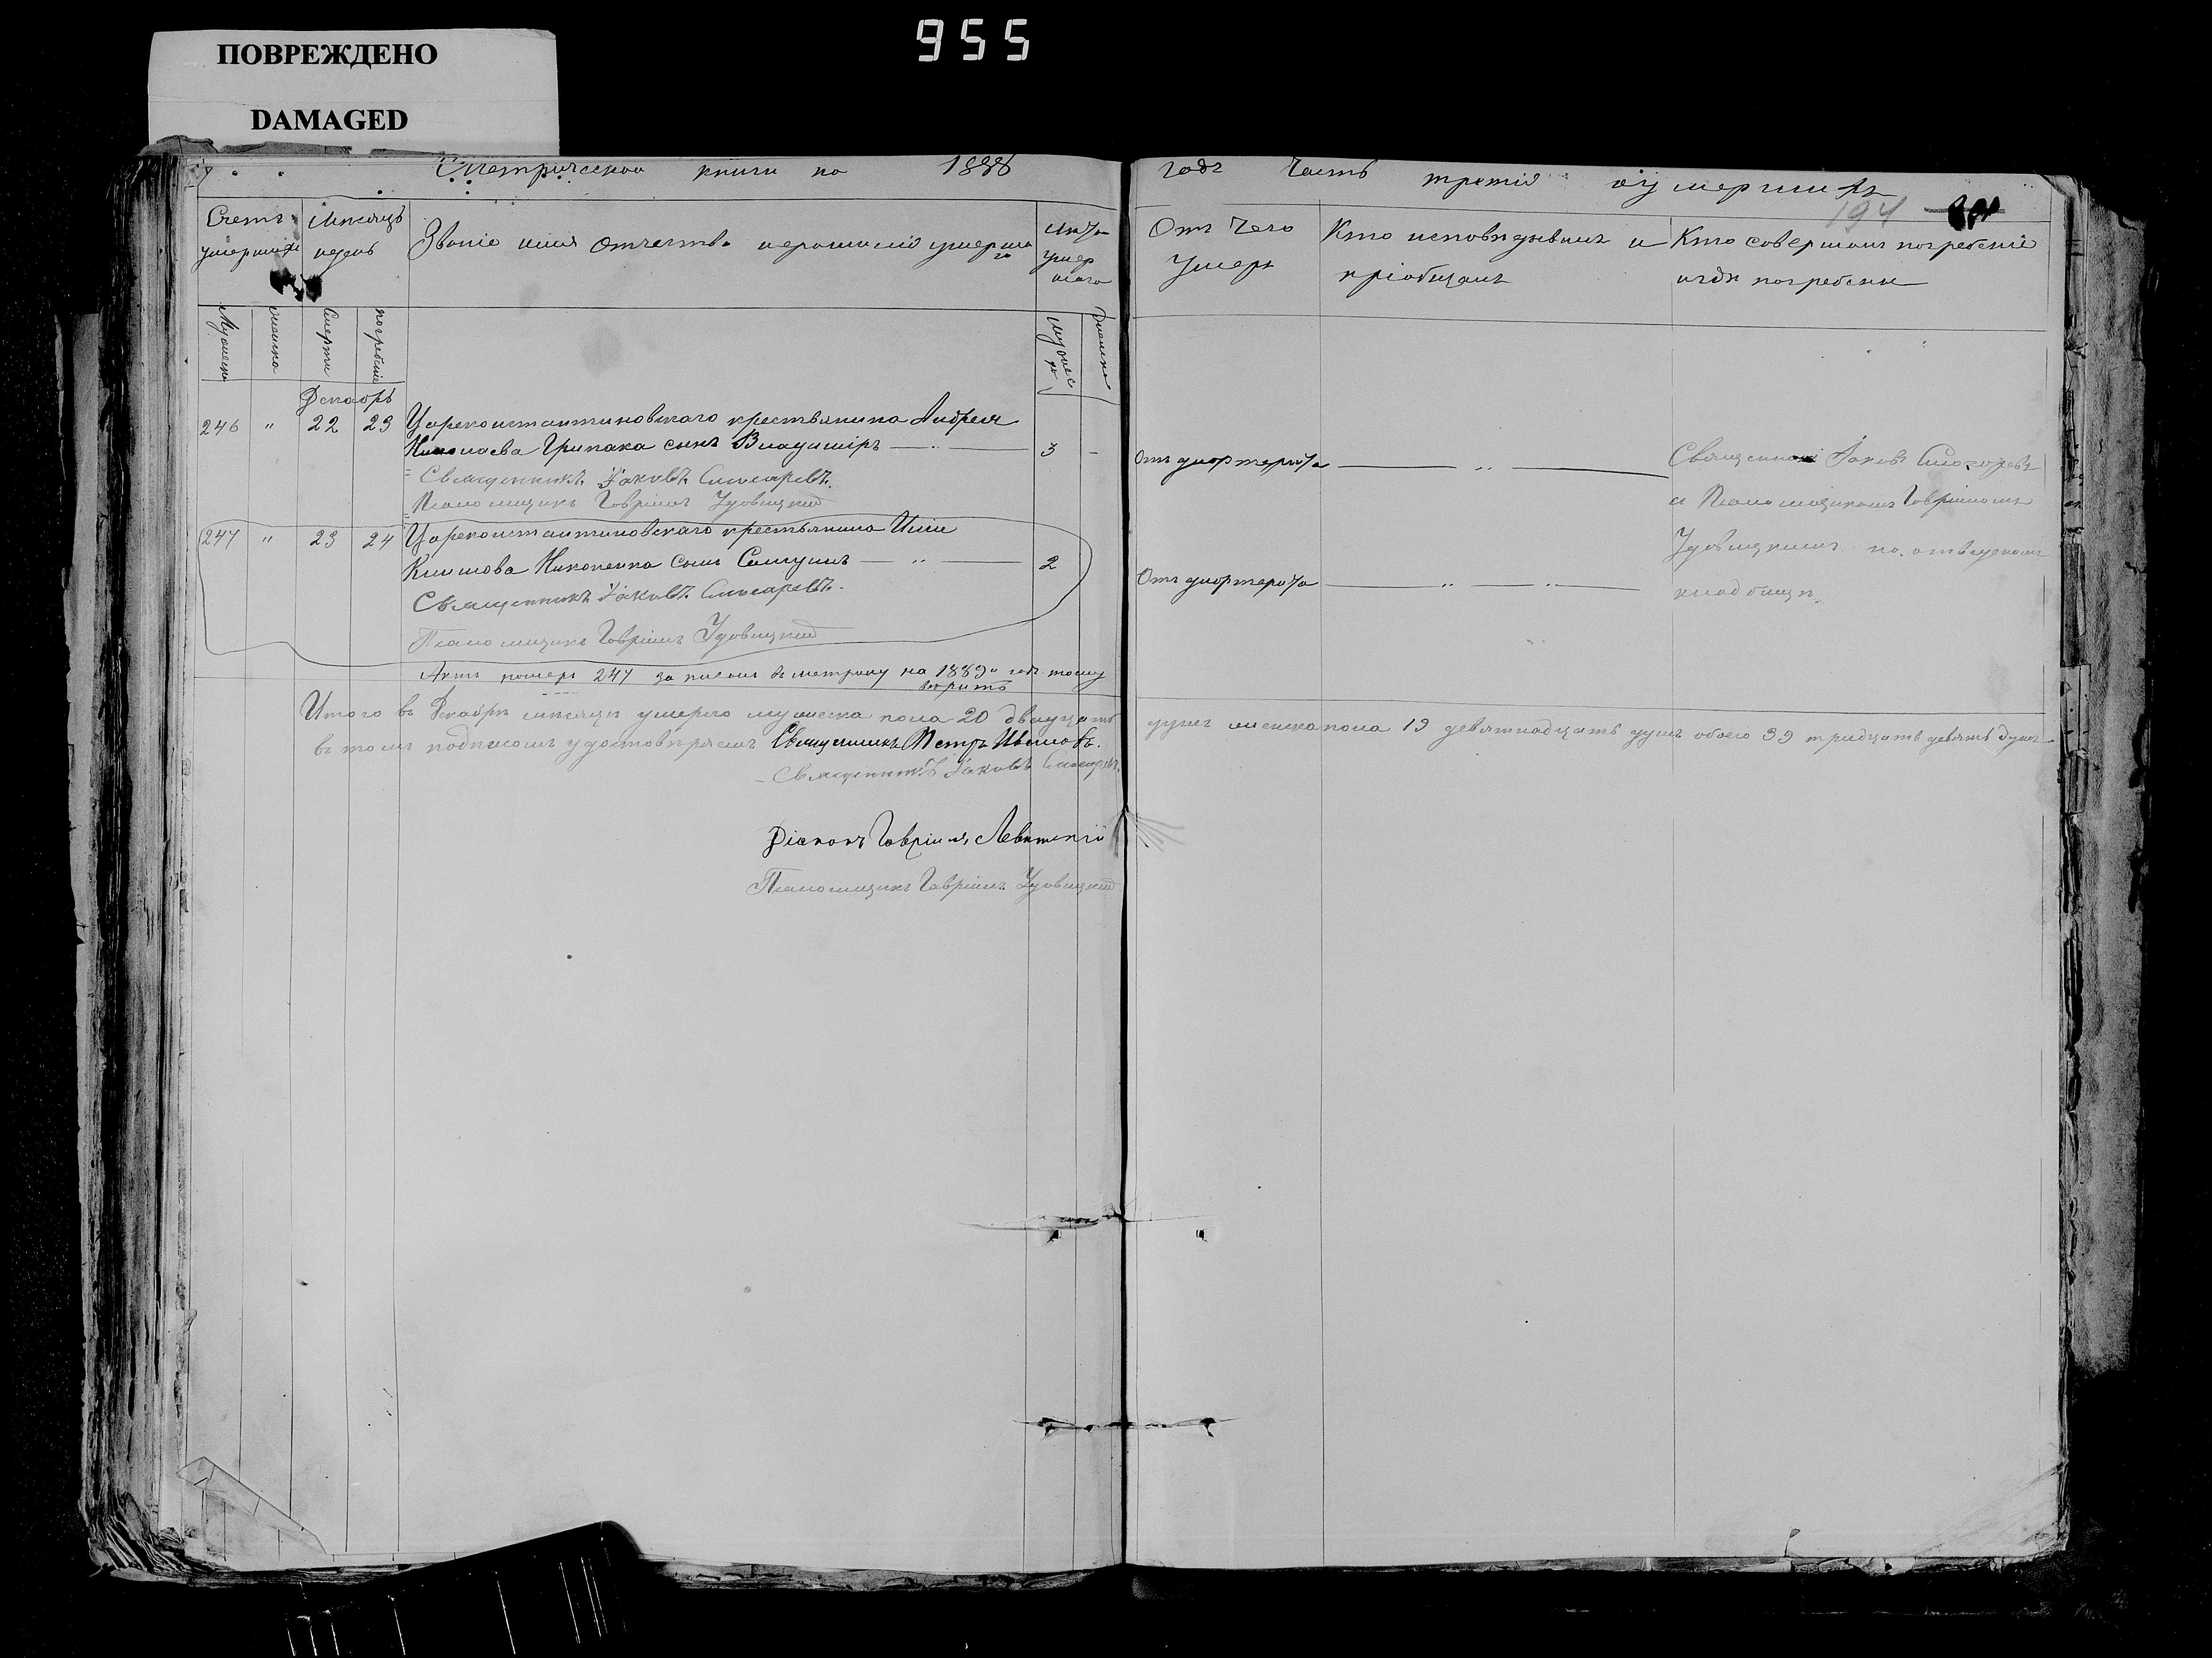 955
ПОВРЕЖДЕНО
DAMAGED
Метрической книги на 1888
годъ Часть третія о умершихъ
194
Счетъ умершихъ
Мѣсяцъ и день
Званіе имя отчество и фамилія умершаго
Лѣта умершаго
Отъ чего умеръ
Кто исповѣдывалъ и пріобщалъ
Кто совершалъ погребеніе и гдѣ погребены
Мужеска
женска
Смерти
погребенія
Мужеска
Женска
Декабрь
246 " 22 23 Цареконстантиновскаго крестьянина Андрея
Николаева Грипака сынъ Владиміръ 3 -
Отъ дифтерита "
Священникъ Іаковъ Слюсаревъ.
Псаломщикъ Гавріилъ Удовицкій
Священникъ Іаковъ Слюсаревъ
и Псаломщикомъ Гавріиломъ
Удовицкимъ на отведенномъ
кладбищѣ.
247 " 23 24 Цареконстантиновскаго крестьянина Иліи
Климова Никоненка сынъ Самуилъ " 2
Отъ дифтерита " "
Священникъ Іаковъ Слюсаревъ.
Псаломщикъ Гавріилъ Удовицкій
Актъ номеръ 247 записанъ въ метрику на 1889й годъ тому
вѣрить
Итого въ Декабрѣ мѣсяцѣ умерло мужеска пола 20 двадцать
душъ женска пола 19 девятнадцать душъ обоего 39 тридцать девять душъ
въ томъ подписомъ удостовѣряемъ Священникъ Петръ Ивановъ.
Священникъ Іаковъ Слюсаревъ.
Діаконъ Гавріилъ Левитскій
Псаломщикъ Гавріилъ Удовицкій